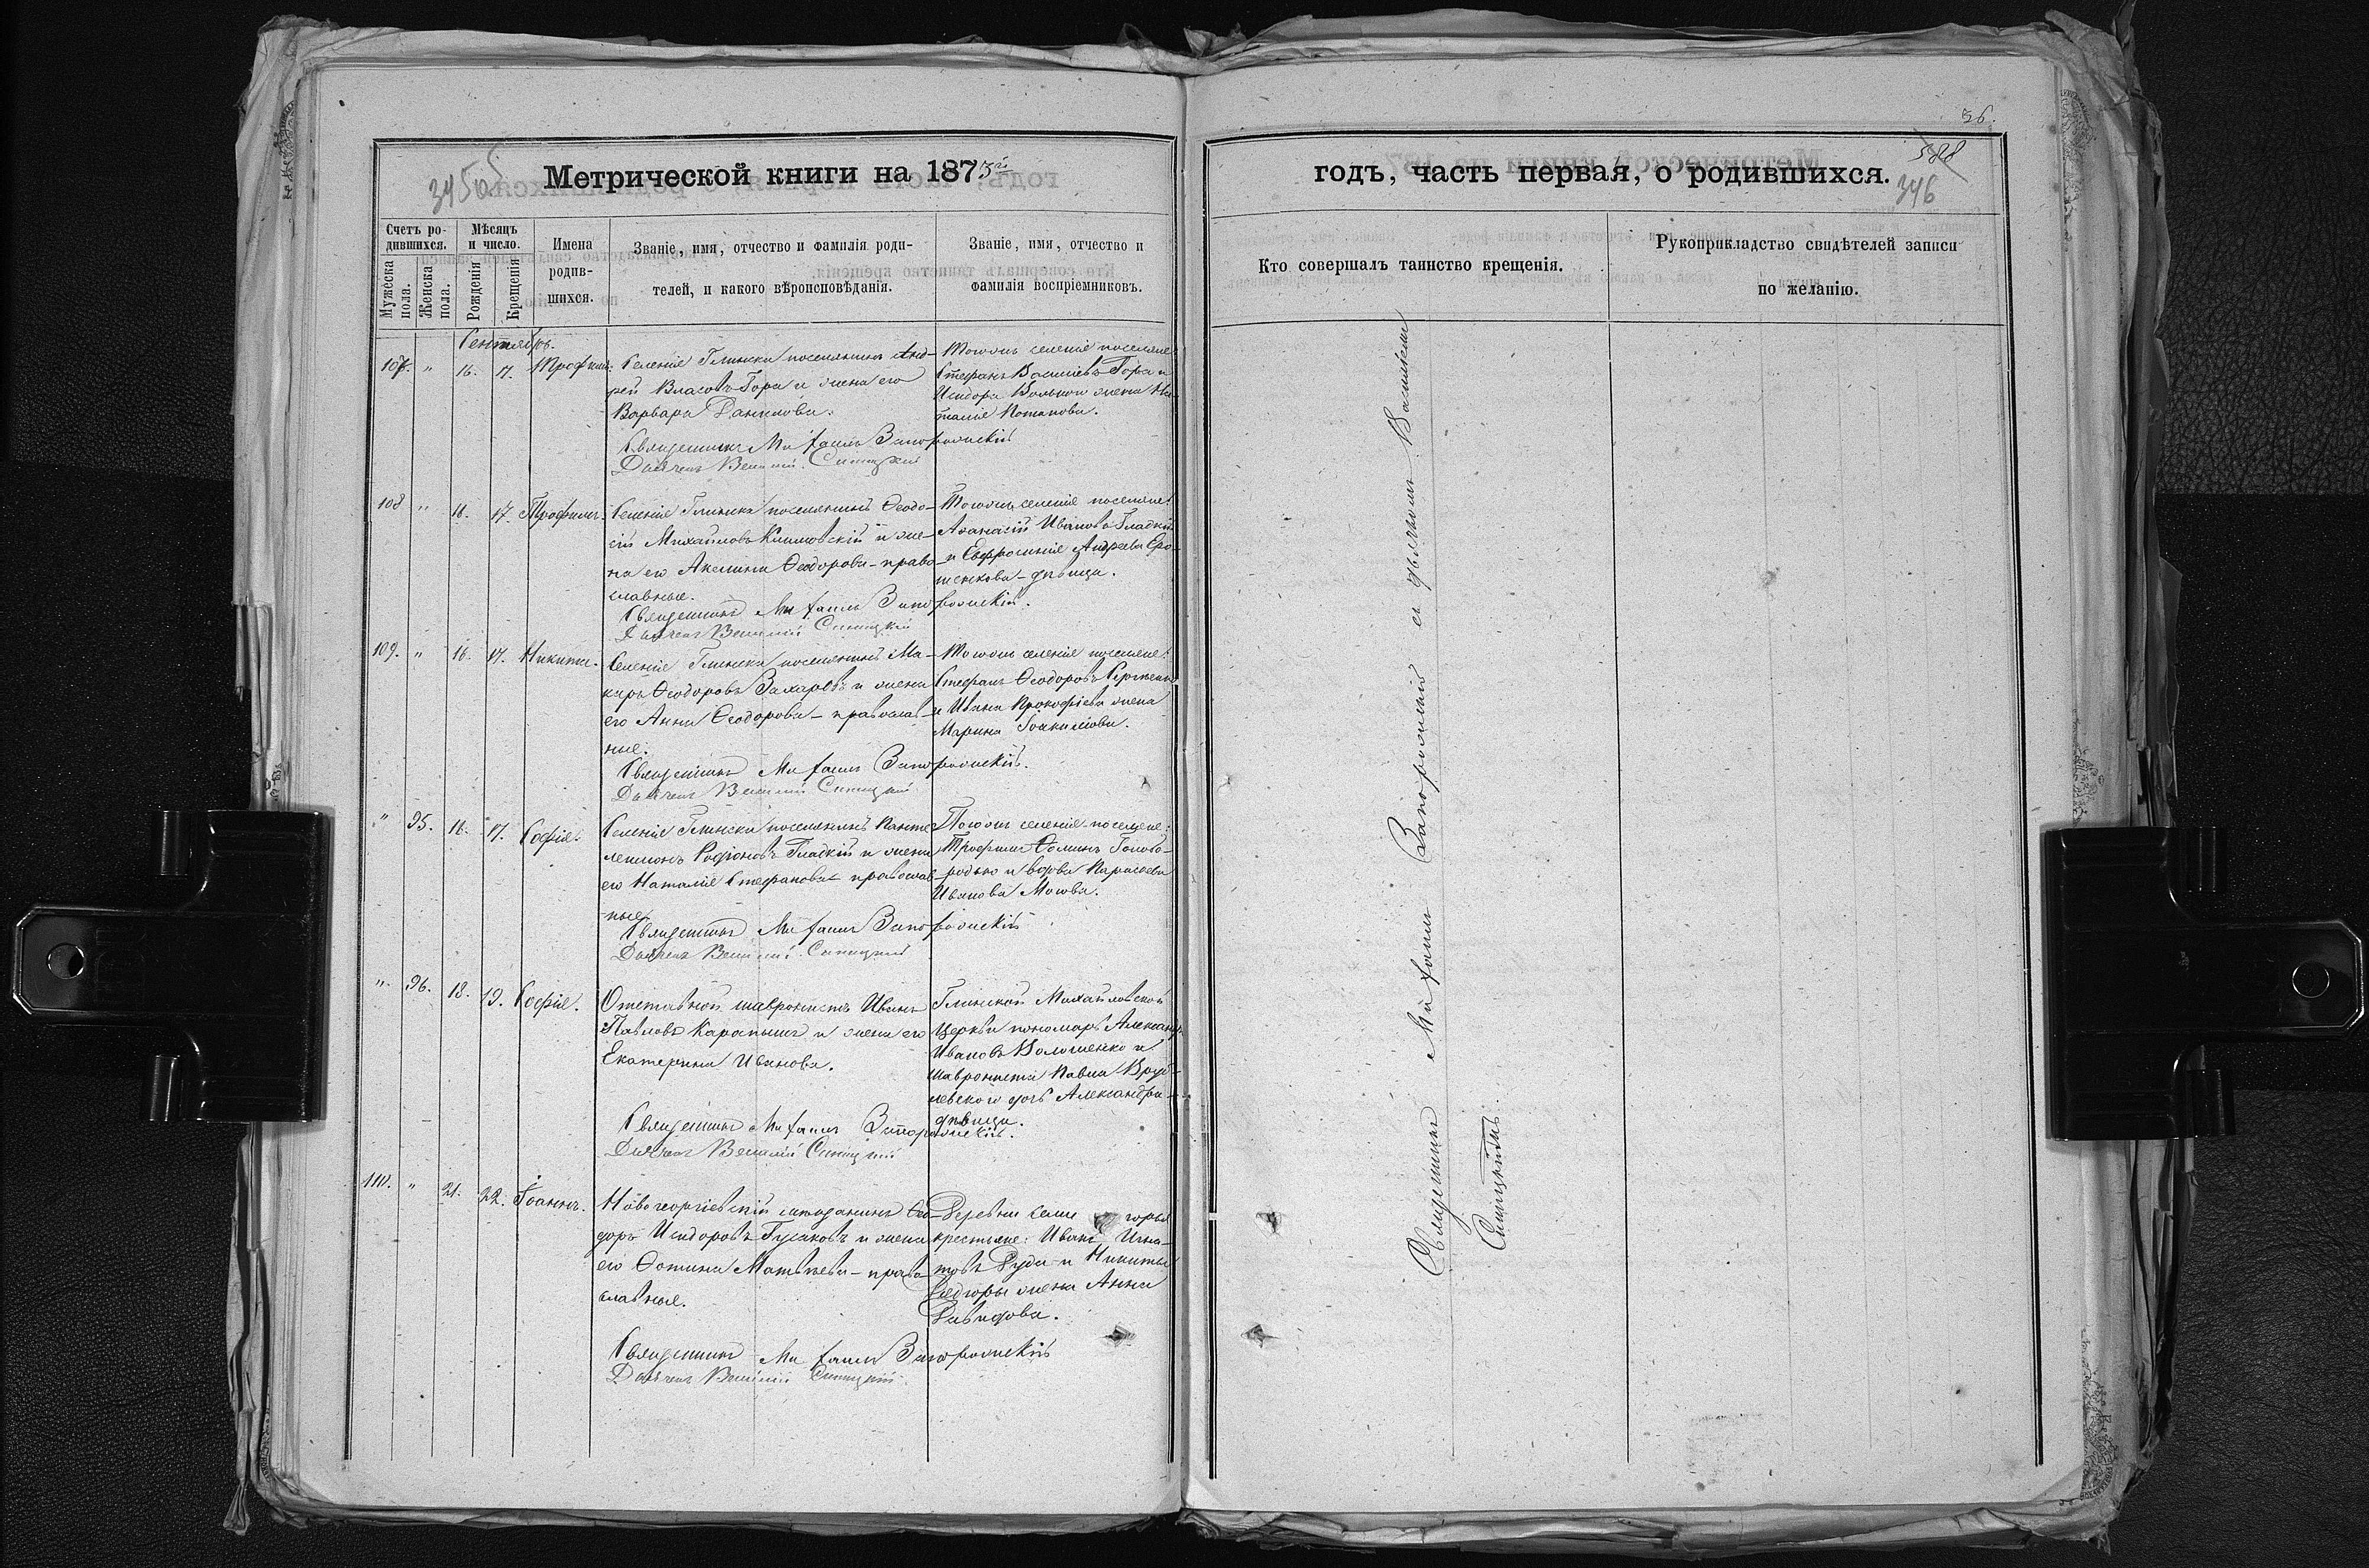 36.
588
345об
346
Метрической книги на 1873й
годъ, часть первая, о родившихся.
Счетъ родившихся.
Мужеска пола.
Женска пола.
Мѣсяцъ и число.
Рожденія
Крещенія
Имена родив-
шихся.
Званіе, имя, отчество и фамилія роди-
телей, и какого вѣроисповѣданія.
Званіе, имя, отчество и
фамилія воспріемниковъ.
Кто совершалъ таинство крещенія.
Рукоприкладство свидѣтелей записи
по желанію.
Сентябрь
107. " 16. 17. Трофимъ.
Селенія Глинска поселянинъ Анд-
рей Власовъ Гора и жена его
Варвара Данилова.
Тогожъ селенія поселяне
Стефанъ Гора и
Исидора жена На-
талія Потапова.
Священникъ Михаилъ Запорожскій
Дьячекъ Василій Синицкій
108 " 16. 17. Трофимъ.
Селенія Глинска поселянинъ Феодо-
сій Михайловъ Климовскій и же-
на его Акилина Феодорова - право-
славные.
Тогожъ селенія поселяне:
Афанасій Ивановъ Гладкій
и Евфросинія Андреева Еро-
шенкова - дѣвица.
Священникъ Михаилъ Запорожскій.
Дьячекъ Василій Синицкій
109. " 16. 17. Никита.
Селенія Глинска поселянинъ Ма-
каръ Феодоровъ Захаровъ и жена
его Анна Феодорова - православ-
ные.
Тогожъ селенія поселяне:
Стефанъ Феодоровъ
и Ивана Прокофіева жена
Марина Іоакимова.
Священникъ Михаилъ Запорожскій.
Дьячекъ Василій Синицкій
" 95. 16. 17. Софія.
Селенія Глинска поселянинъ Панте-
леимонъ Родіоновъ Гладкій и жена
его Наталія Стефанова - православ-
ные.
Тогожъ селенія поселяне:
Трофимъ Фоминъ Голобо-
родько и вдова Параскева
Иванова
Священникъ Михаилъ Запорожскій
Дьячекъ Василій Синицкій
" 96. 18. 19. Софія.
Отставной Иванъ
Павловъ и жена его
Екатерина Иванова.
Глинской Михайловской
Церкви пономарь Александръ
Ивановъ Волошенко и
Павла
дочь Александра -
дѣвица.
Священникъ Михаилъ Запорожскій.
Дьячекъ Василій Синицкій
110. " 21. 22. Іоаннъ.
Новогеоргіевскій Фео-
доръ Исидоровъ Гусаковъ и жена
его Фотина Матвѣева - право-
славные.
Деревни
крестьяне: Иванъ Игна-
товъ Руда и Никиты
жена Анна
Давидова.
Священникъ Михаилъ Запорожскій
Дьячекъ Василій Синицкій
Священникъ Михаилъ Запорожскій съ дьячкомъ Василіемъ
Синицкимъ.